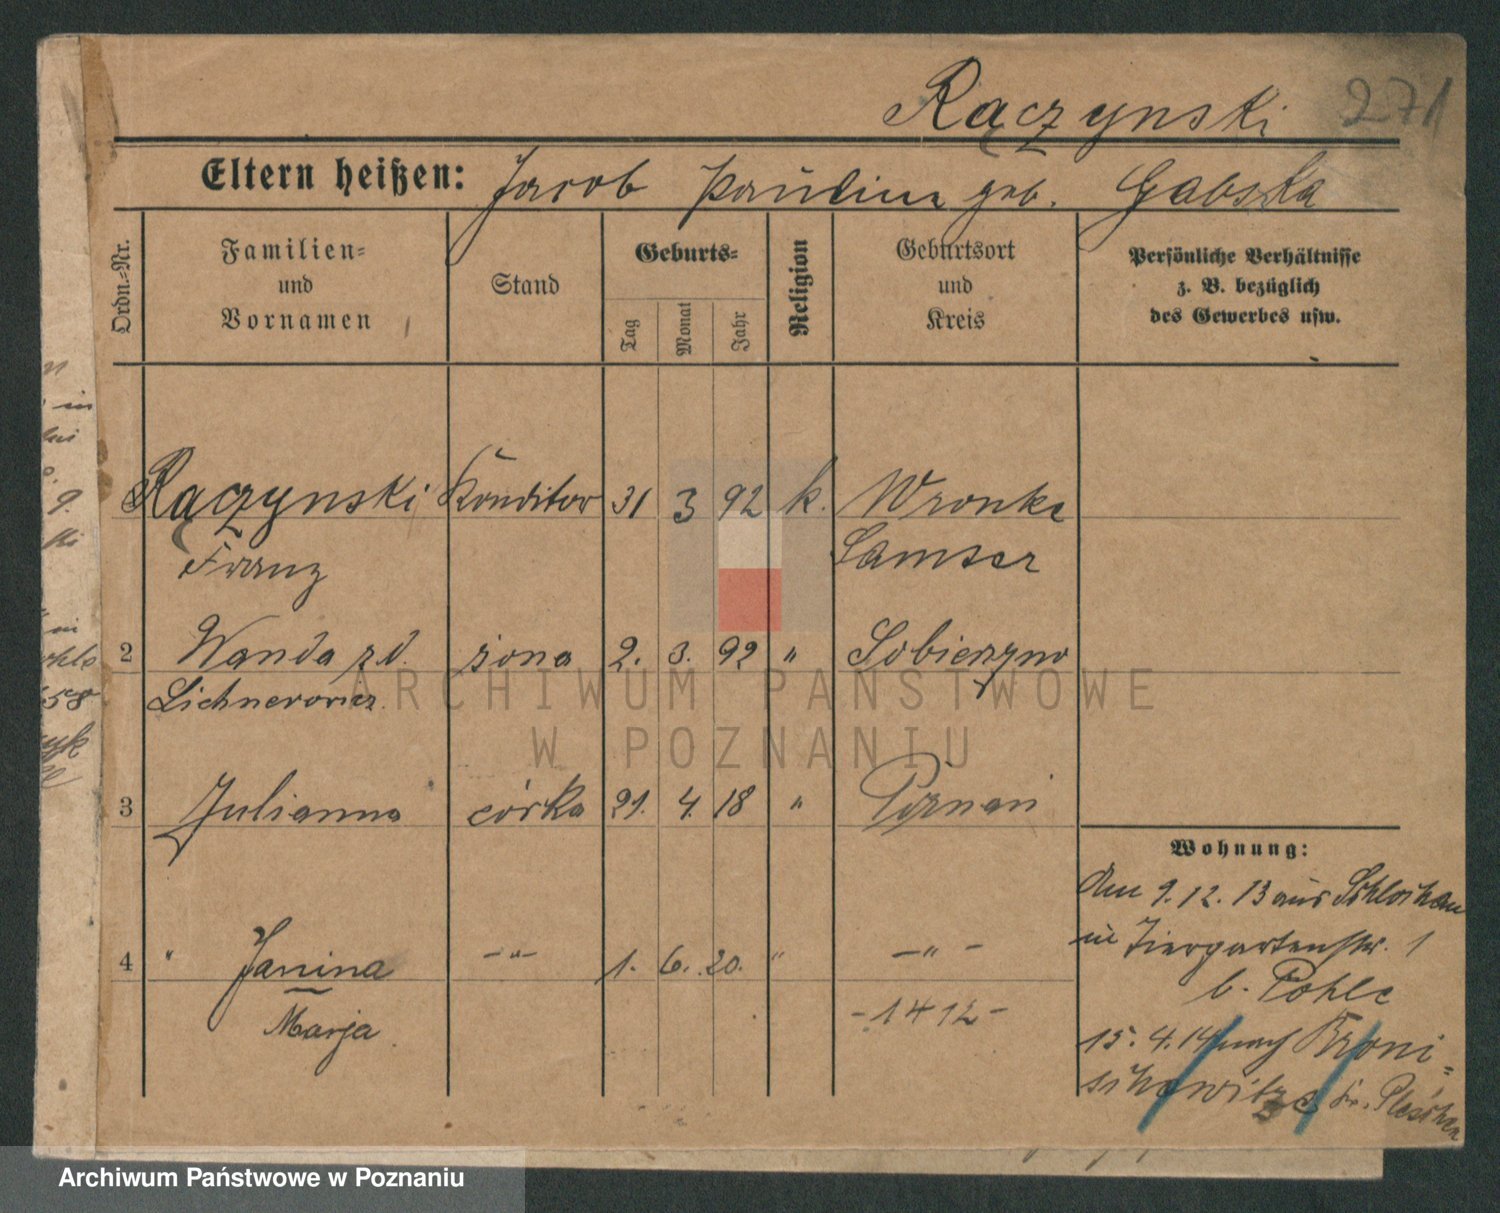 Rączynski 271
Eltern heißen: Jacob Pauline geb. Gabska
Ordn.-Nr.
Familien-
und
Vornamen
Stand
Geburts-
Tag
Monat
Jahr
Religion
Geburtsort
und
Kreis
Persönliche Verhältnisse
z. B. bezüglich
des Gewerbes usw.
Rączynski Konditor 31 3 92 k. Wronke
Franz Samter
2 Wanda zd. żona 2. 3. 92 " Sobierzyno
Lichnerowicz
3 Julianna córka 21. 4. 18 " Poznań
4 " Janina -"- 1. 6. 20. " -"-
Marja
-1412-
Wohnung:
Am 9.12.13 aus Schlochau
in Tiergartenstr. 1
b. Pohle
15.4.14 nach Broni-
schewitz Kr. Pleschen
ARCHIWUM PAŃSTWOWE
W POZNANIU
Archiwum Państwowe w Poznaniu